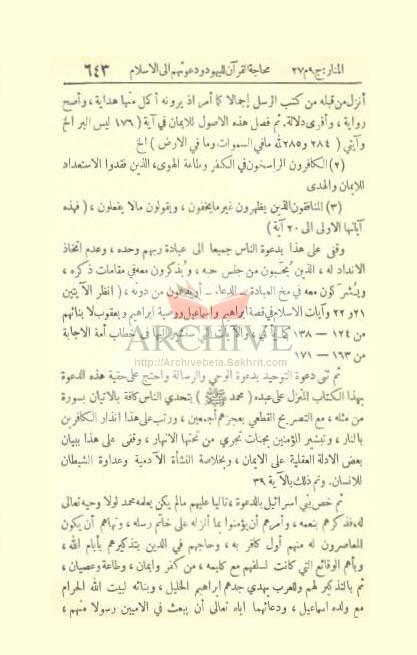 المنار: ج٩ م٢٧ محاجة القرآن لليهود ودعوتهم الى الاسلام ٦٤٣
أنزل من قبله من كتب الرسل إجمالا كما أمر اذ يرونه أكمل منها هداية ، وأصح
رواية ، وأقوى دلالة. ثم فصل هذه الاصول للايمان في آية ( ١٧٦ ليس البر الخ
وآيتي ( ٢٨٤ و٢٨٥ لله مافي السموات وما في الارض ) الخ
(٢) الكافرون الراسخون في الكفر وطاعة الهوى، الذين فقدوا الاستعداد
للايمان والهدى
(٣) المنافقون الذين يظهرون غير مايخفون ، ويقولون مالا يفعلون ، ( فهذه
آياتها الاولى الى ٢٠ آية )
وقفى على هذا بدعوة الناس جميعا الى عبادة ربهم وحده ، وعدم اتخاذ
الانداد له ، الذين يُحبّبون من جنس حبه ، ويُذكرون معه في مقامات ذكره ،
ويشركون معه في مخ العبادة ــ الدعاء ــ أو يدعون من دونه ، ( انظر الآيتين
٢١ و ٢٢ وآيات الاسلام في قصة ابراهيم واسماعيل ووصية ابراهيم ويعقوب لابنائهم
من ١٢٤ — ١٣٨ خطاب أمة الاجابة
من ١٦٣ — ١٧١
ARCHIVE
http://Archivebeta.Sakhrit.com
ثم ثنى دعوة التوحيد بدعوة الوحي والرسالة واحتج على حقية هذه الدعوة
بهذا الكتاب المنزل على عبده ( محمد ﷺ ) بتحدي الناس كافة بالاتيان بسورة
من مثله ، مع التصريح القطعي بعجزهم أجمعين ، ورتب على هذا انذار الكافرين
بالنار ، وتبشير المؤمنين بجنات تجري من تحتها الانهار ، وقفى على هذا ببيان
بعض الادلة العقلية على الايمان ، وبخلاصة النشأة الآدمية وعداوة الشيطان
للانسان. وتم ذلك بالآية ٣٩
ثم خص بني اسرائيل بالدعوة ، تاليا عليهم مالم يكن يعلمه محمد لولا وحيه تعالى
له، فذكرهم بنعمه ، وأمرهم أن يؤمنوا بما أنزله على خاتم رسله ، ونهاهم أن يكون
المعاصرون له منهم أول كافر به ، وحاجهم في الدين بتذكيرهم بأيام الله ،
وبأهم الوقائع التي كانت لسلفهم مع كليمه ، من كفر وايمان ، وطاعة وعصيان ،
ثم بالتذكير لهم وللعرب بهدي جدهم ابراهيم الخليل ، وبنائه لبيت الله الحرام
مع ولده اسماعيل ، ودعائهما اياه تعالى أن يبعث في الاميين رسولا منهم ،